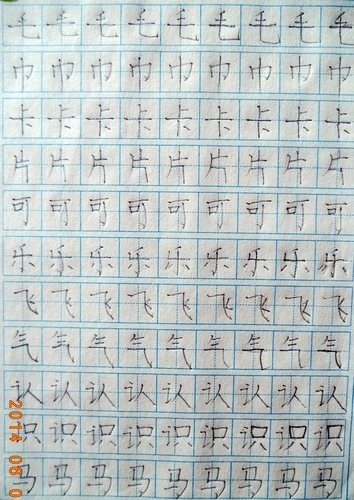 毛毛毛毛毛毛毛毛毛
巾巾巾巾巾巾巾巾巾
卡卡卡卡卡卡卡卡卡
片片片片片片片片片
可可可可可可可可可
乐乐乐乐乐乐乐乐乐
飞飞飞飞飞飞飞飞飞
气气气气气气气气气
认认认认认认认认认
识识识识识识识识识
马马马马马马马马马